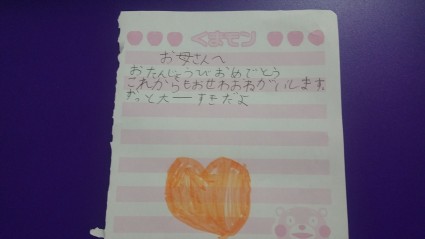 くまモン
お母さんへ
おたんじょうびおめでとう
これからもおせわおねがいします
ずっと大ーすきだよ